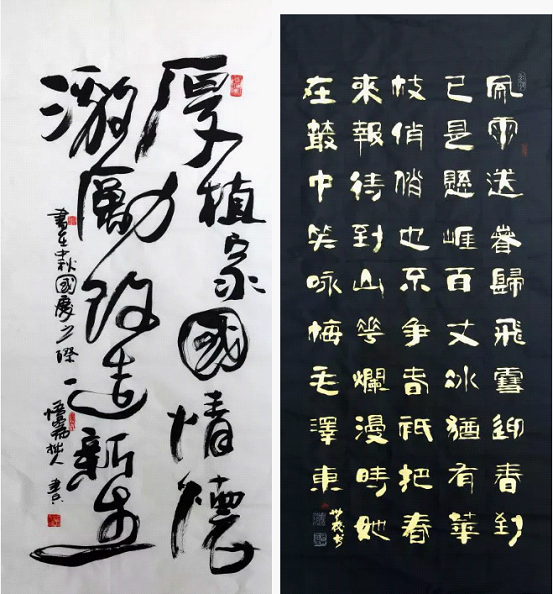 厚植家國情懷
激勵改造新生
書在中秋國慶之際
拙人 書
風雨送春歸飛雪迎春到
已是懸崖百丈冰猶有華
枝俏俏也不爭春祇把春
來報待到山花爛漫時她
在叢中笑咏梅毛澤東